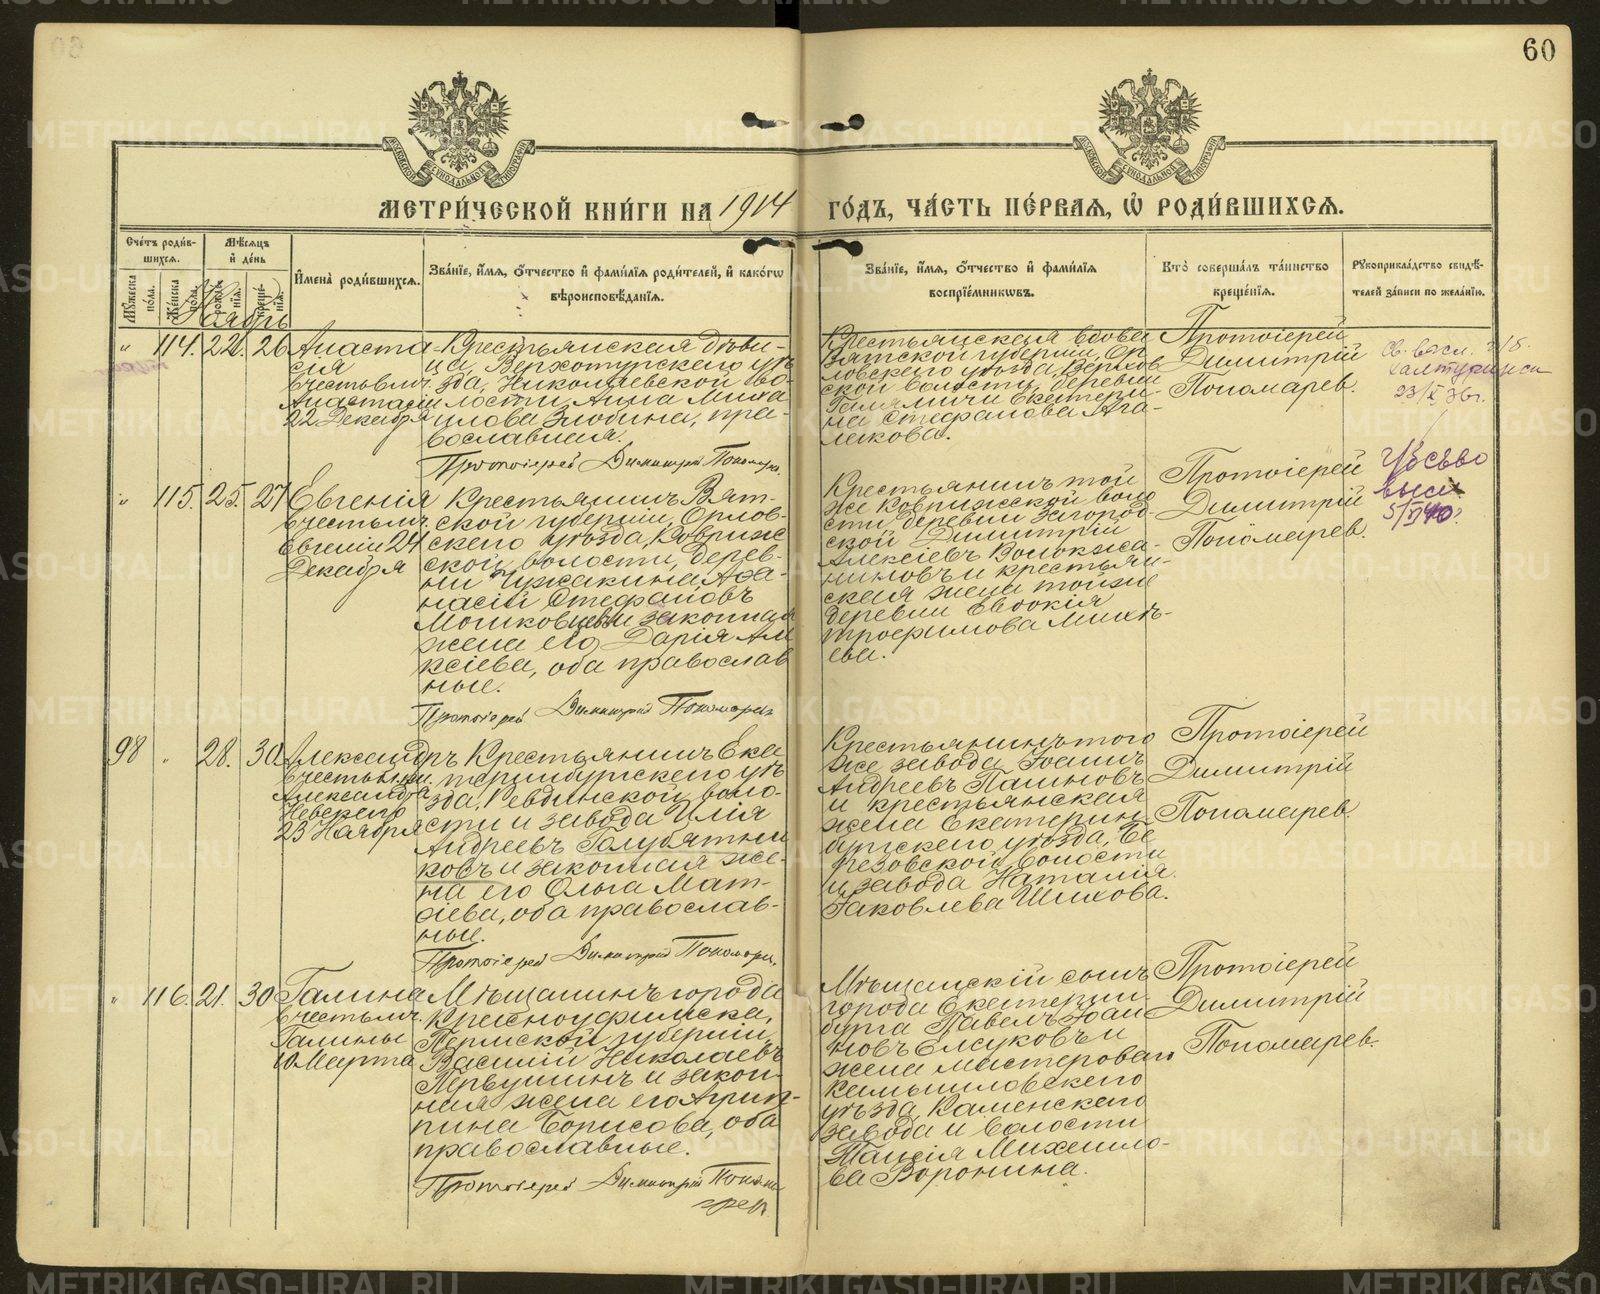 60
МЕТРИ́ЧЕСКОЙ КНИ́ГИ НА 1914 ГО́ДЪ, ЧА́СТЬ ПЕ́РВАЯ, Ѡ РОДИ́ВШИХСЯ.
Сче́тъ роди́в-
шихся.
Мѣ́сяцъ
и҆ де́нь
Мꙋ́жеска по́ла.
Же́нска по́ла.
рожде́нїѧ.
креще́нїѧ.
И҆мена̀ роди́вшихся.
Зва́нїе, и҆́мя, ѻ҆́тчество и҆ фами́лїя роди́телей, и҆ како́гѡ
вѣроисповѣ́данїя.
Зва́нїе, и҆́мя, ѻ҆́тчество и҆ фами́лїя
воспрїе́мникѡвъ.
Кто̀ соверша́лъ та́инство
креще́нїя.
Рꙋкоприкла́дство свидѣ́-
телей за́писи по жела́нїю.
Ноябрь
" 114. 22. 26
Анаста
сія
въ честь влмч.
Анастасіи
22 Декабря
Крестьянская дѣви-
ца, Верхотурскаго уѣ
зда, Николаевской во-
лости, Анна Миха
илова Злобина, пра-
вославная.
Протоіерей Димитрій Пономарев
Крестьянская вдова
Вятской губерніи, Ор
ловскаго уѣзда, Верхов
ской волости, деревни
Екатери-
на Стефанова Ага-
лакова.
Протоіерей
Димитрій
Пономарев.
23/X 36г.
" 115. 25. 27
Евгенія
въ честь влмч.
Евгеніи 24
Декабря
Крестьянинъ Вят-
ской губерніи, Орлов-
скаго уѣзда, Ковриж
ской волости, дерев-
ни Чужакина Аѳа-
насій Стефановъ
и законная
жена его Дарія Але
ксіева, оба православ
ные.
Протоіерей Димитрій Пономарев
Крестьянинъ той
же Коврижской воло
сти, деревни Загород-
ской Димитрій
Алексіевъ Волокжа-
ниновъ и крестьян-
ская жена той же
деревни Евдокія
Трофимова Михѣ-
ева.
Протоіерей
Димитрій
Пономарев.
98 " 28. 30.
Александръ
въ честь влкн.
Александра
Невскаго
23 Ноября
Крестьянинъ Ека
теринбургскаго уѣ
зда, Ревдинской воло-
сти и завода Илія
Андреевъ Голубятни
ковъ и законная же-
на его Ольга Мат-
ѳіева, оба православ-
ные.
Протоіерей Димитрій Пономарев
Крестьянинъ того
же завода Іоаннъ
Андреевъ Палиновъ
и крестьянская
жена Екатерин-
бургскаго уѣзда, Бе
резовской волости
и завода Наталія
Іаковлева Шихова.
Протоіерей
Димитрій
Пономарев.
" 116. 21. 30
Галина
въ честь влмч.
Галины
10 Марта
Мѣщанинъ города
Красноуфимска,
Пермской губерніи,
Василій Николаевъ
Первушинъ и закон-
ная жена его Агрип-
пина Борисова, оба
православные.
Протоіерей Димитрій Понома
рев
Мѣщанскій сынъ
города Екатерин-
бурга Павелъ Іоан
новъ Елсуковъ и
жена мастероваго
Камышловскаго
уѣзда, Каменскаго
завода и волости
Таисія Михаило-
ва Воронина.
Протоіерей
Димитрій
Пономарев.
METRIKI.GASO-URAL.RU